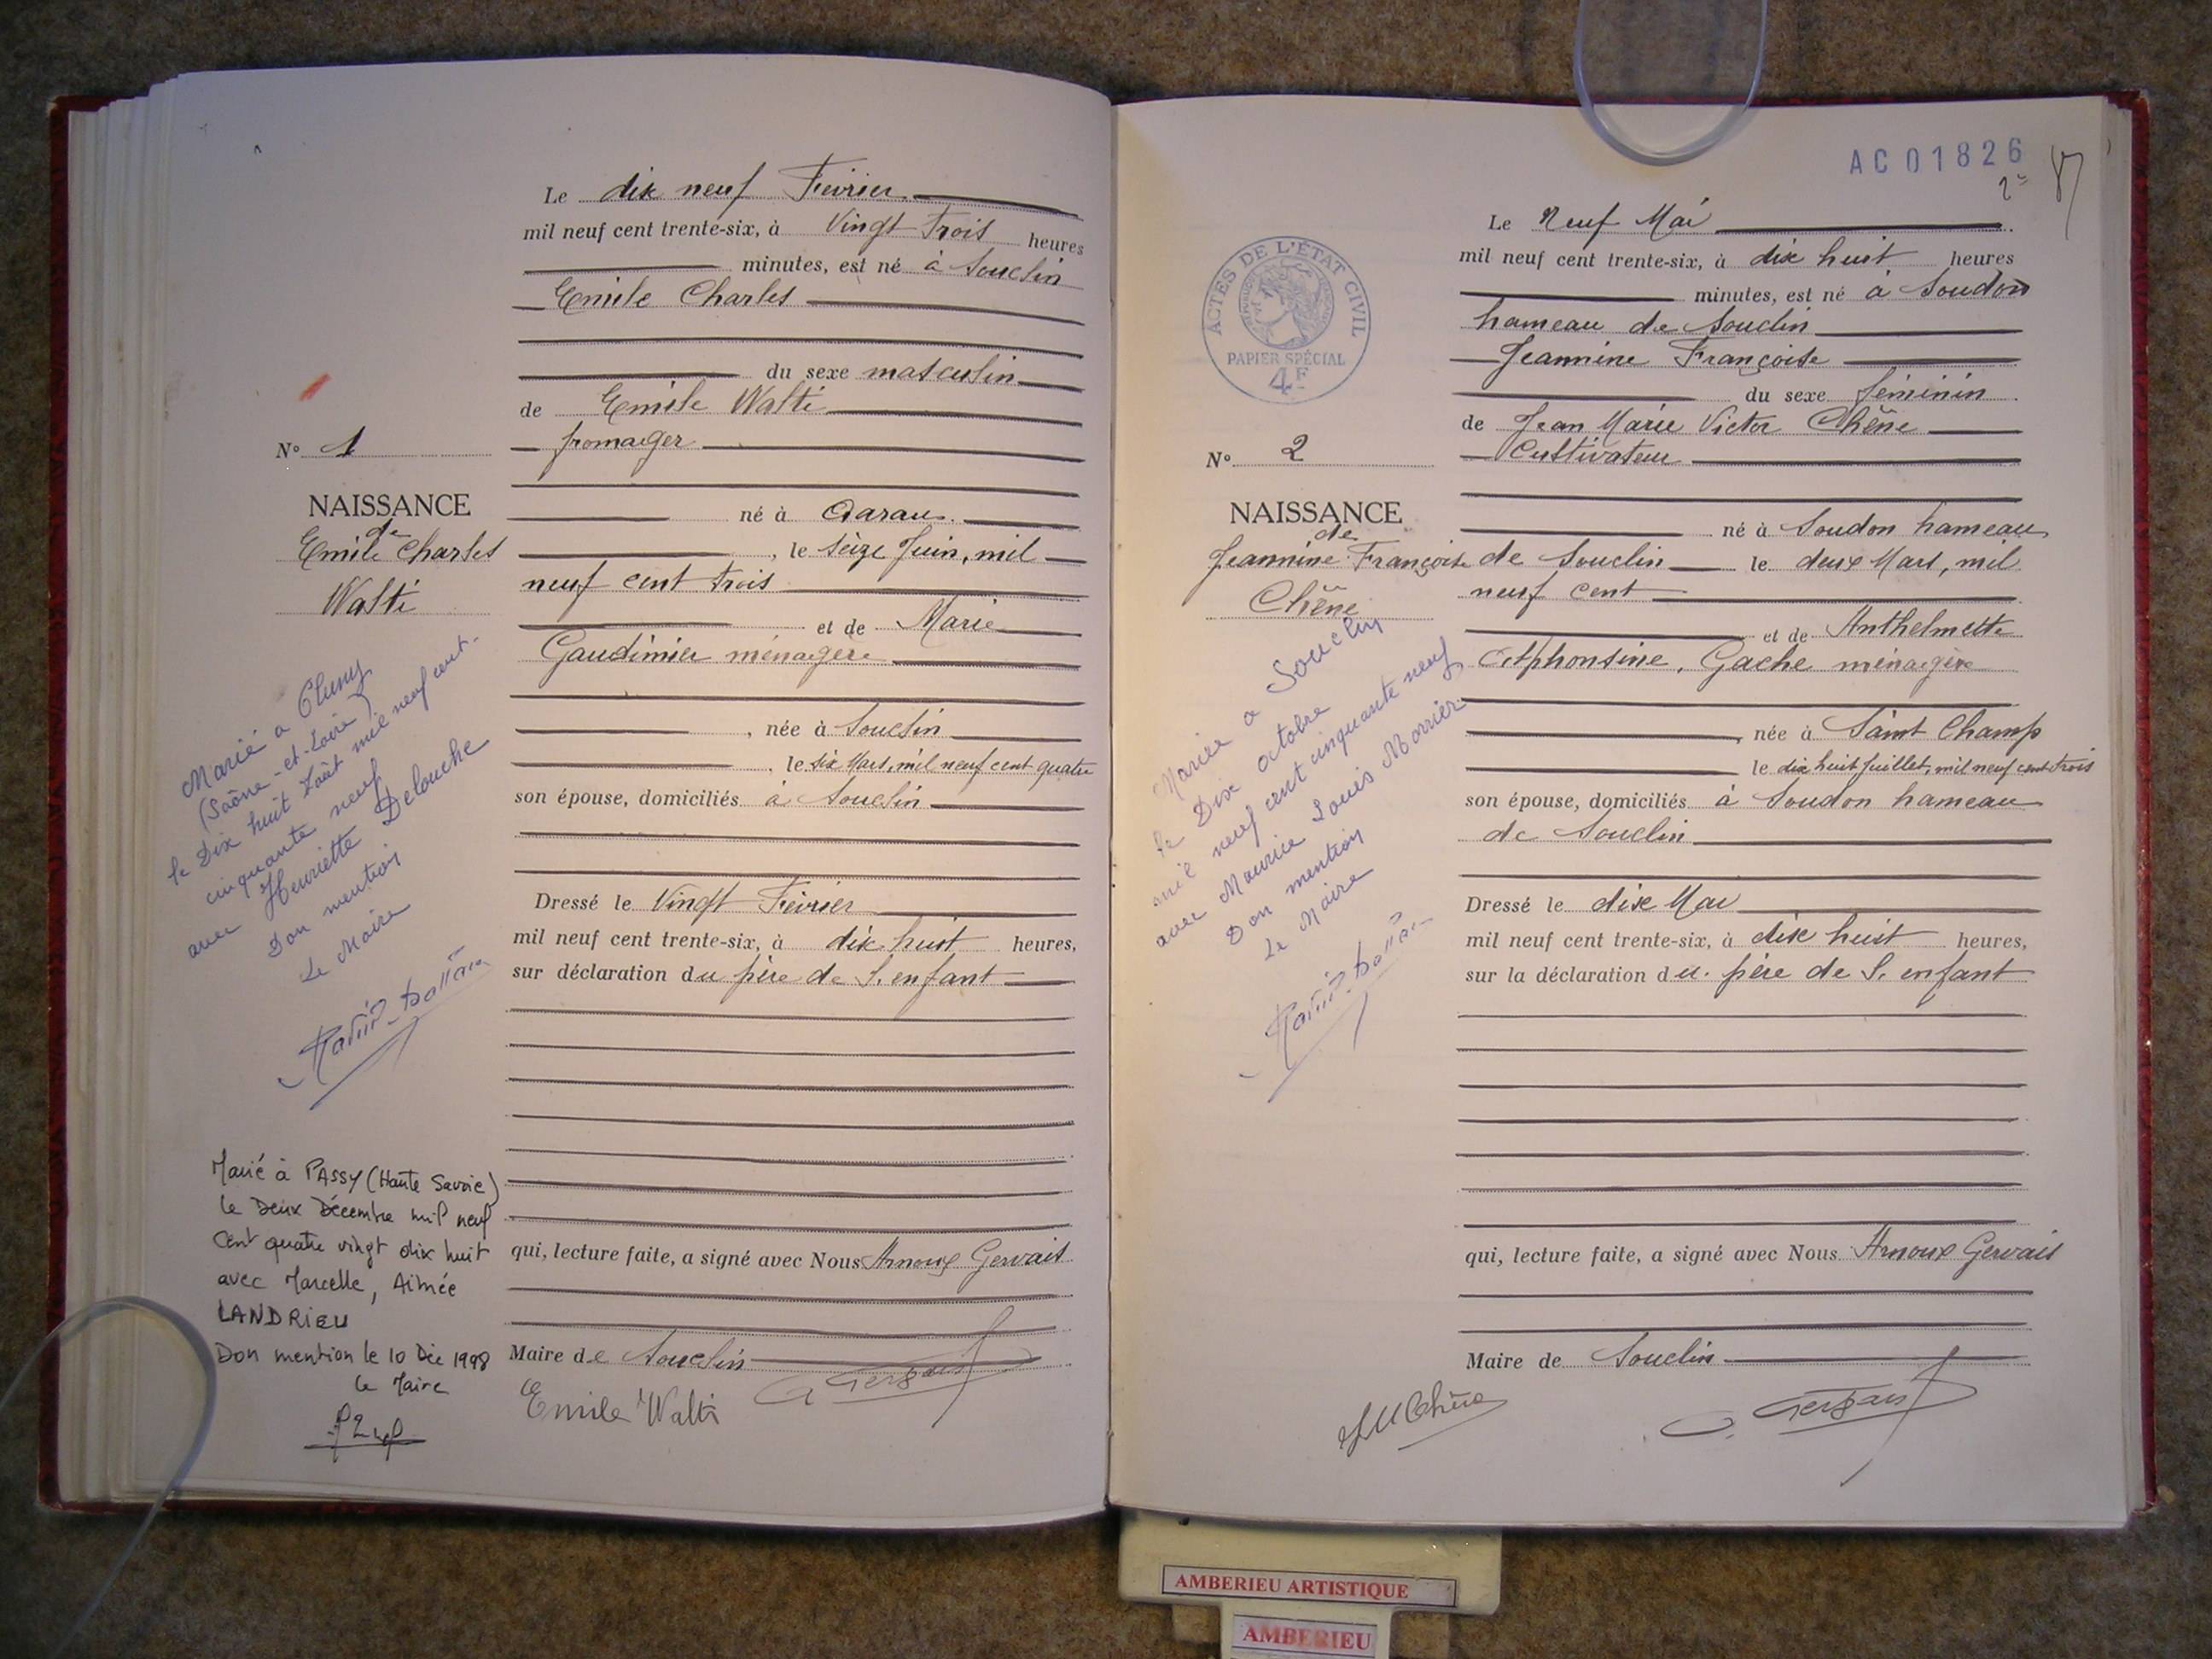 Le dix neuf Février
mil neuf cent trente-six, à Vingt Trois heures
minutes, est né à Souclin
Emile Charles
du sexe masculin
de Emile Walti
fromager
N° 1
né à Aarau
NAISSANCE
de
Emile Charles
Walti
, le seize Juin, mil
neuf cent trois
et de Marie
Gaudimier ménagère
, née à Souclin
, le six Mars, mil neuf cent quatre
son épouse, domiciliés à Souclin
Dressé le Vingt Février
mil neuf cent trente-six, à dix huit heures,
sur déclaration du père de l'enfant
qui, lecture faite, a signé avec Nous Arnoux Gervais
Maire de Souclin
Emile Walti
Marié à Cluny
(Saône-et-Loire)
le Dix huit Août mil neuf cent
cinquante neuf
avec Henriette Delouche
Don mention
Le Maire
Marié à PASSY (Haute Savoie)
le Deux Décembre mil neuf
cent quatre vingt dix huit
avec Marcelle, Aimée
LANDRIEU
Don mention le 10 Déc 1998
le Maire
AC01826
2
87
Le Neuf Mai
mil neuf cent trente-six, à dix huit heures
minutes, est né à Soudon
hameau de Souclin
Jeannine Françoise
du sexe féminin
de Jean Marie Victor Chêne
Cultivateur
ACTES DE L'ÉTAT CIVIL
PAPIER SPÉCIAL
4F
N° 2
NAISSANCE
de
Jeannine Françoise
Chêne
né à Soudon hameau
de Souclin le deux Mars, mil
neuf cent
et de Anthelmette
Alphonsine, Gache ménagère
née à Saint Champ
le dix huit Juillet, mil neuf cent trois
son épouse, domiciliés à Soudon hameau
de Souclin
Dressé le dix Mai
mil neuf cent trente-six, à dix huit heures,
sur la déclaration du père de l'enfant
qui, lecture faite, a signé avec Nous Arnoux Gervais
Maire de Souclin
Mariée à Souclin
le Dix octobre
mil neuf cent cinquante neuf
avec Maurice Louis Marrier
Don mention
Le Maire
AMBERIEU ARTISTIQUE
AMBERIEU